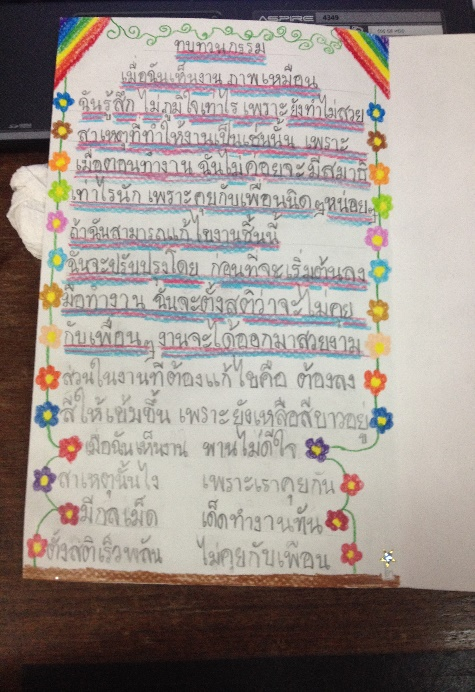 ASPIRE 4349
ทบทวนกรรม
เมื่อฉันเห็นงาน ภาพเหมือน
ฉันรู้สึก ไม่ภูมิใจเท่าไร เพราะยังทำไม่สวย
สาเหตุที่ทำให้งานเป็นเช่นนั้น เพราะ
เมื่อตอนทำงาน ฉันไม่ค่อยจะมีสมาธิ
เท่าไรนัก เพราะคุยกับเพื่อนนิดๆหน่อยๆ
ถ้าฉันสามารถแก้ไขงานชิ้นนี้
ฉันจะปรับปรุงโดย ก่อนที่จะเริ่มต้นลง
มือทำงาน ฉันจะตั้งสติว่าจะไม่คุย
กับเพื่อนๆ งานจะได้ออกมาสวยงาม
ส่วนในงานที่ต้องแก้ไขคือ ต้องลง
สีให้เข้มขึ้น เพราะยังเหลือสีขาวอยู่
เมื่อฉันเห็นงาน พานไม่ดีใจ
สาเหตุนั้นไง เพราะเราคุยกัน
มีกลเม็ด เด็ดทำงานทัน
ตั้งสติเร็วพลัน ไม่คุยกับเพื่อน